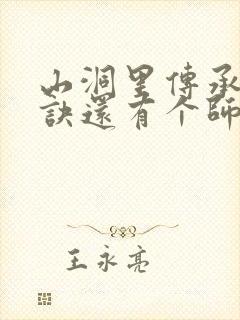 山洞里傳承
訣還有个師
王永亮